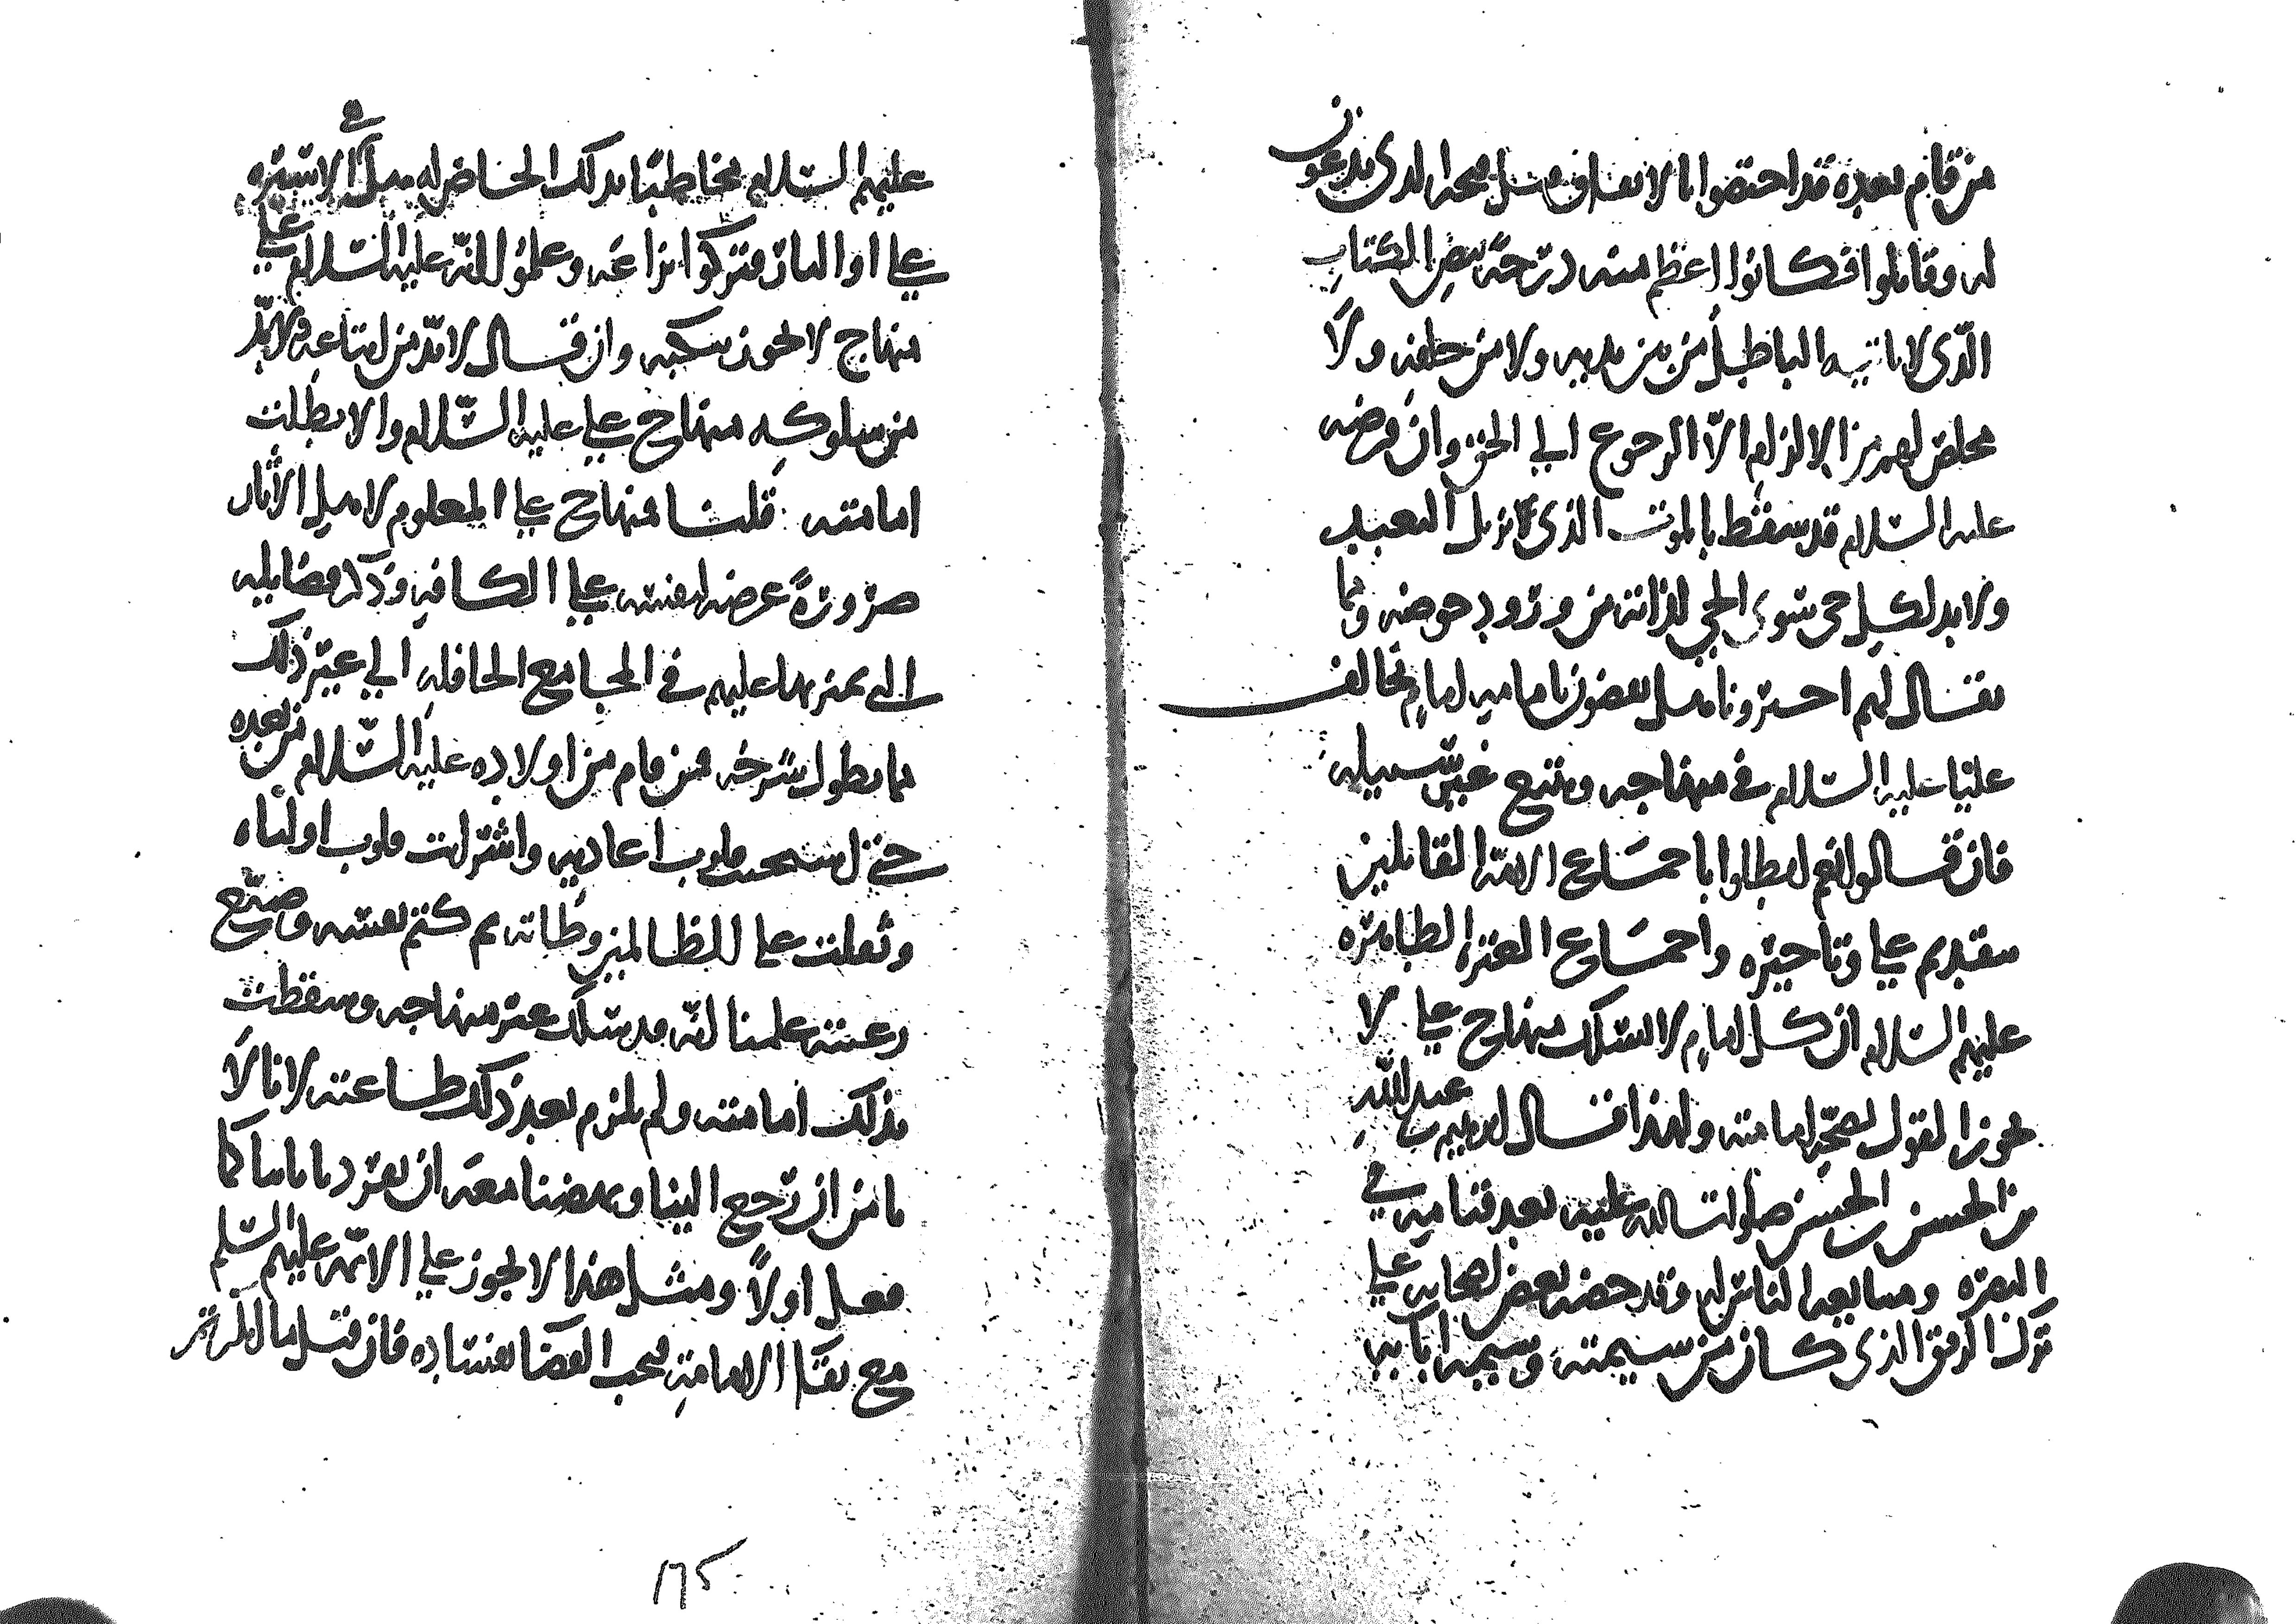 من قام بعده قد اختصوا بالانفاق من قبل الفتح الذي يدعون
له وقاتلوا فكانوا اعظم منه درجة بنص الكتاب
الذي لا ياتيه الباطل من بين يديه ولا من خلفه ولا
مخلص لهم من الالزام الا الرجوع الى الحق وان فرضه
عليه السلام قد سقط بالموت الذي لا يزيل التعبد
ولا بد لكل حي سوى الحي لذاته من ورود حوضه ومما
يقال لهم اخبرونا هل يقضون بامامة امام يخالف
عليا عليه السلام في منهاجه ويتبع غير سبيله
فان قالوا نعم ابطلوا باجماع الامة القائلين
بتقديم علي وتاخيره واجماع العترة الطاهرة
عليهم السلام ان كل امام لا يسلك منهاج علي لا
يجوز القول بصحة امامته ولهذا قال ابرهيم بن عبد الله
بن الحسن بن الحسن صلوات الله عليه بعد قيامه في
البصرة ومبايعة الناس له وقد حضه بعض اصحابه على
ترك الرفق الذي كان من سيمته وسيمة ابائه
عليهم السلام مخاطبا بذلك الحاضر له هل في الا سيرة
علي او النار فتركوا نزاعه وعلموا انه عليه السلام على
منهاج لا يجوز تنكبه وان قال لا بد من اتباعه ولا بد
من سلوكه منهاج علي عليه السلام والا بطلت
امامته قلنا منهاج علي المعلوم لاهل الاثار
ضرورة عرضه لنفسه على الكافة وذكر فضايله
التي تميز بها عليهم في المجامع الحافلة الى غير ذلك
مما يطول شرحه فمن قام من اولاده عليه السلام من بعده
حتى قلوب اعاديه قلوب اوليائه
وثقلت على الظالمين وطاته ثم كتم نفسه وضيع
رعيته علمنا انه قد سلك غير منهاجه وسقطت
بذلك امامته ولم يلزم بعد ذلك طاعته لانا لا
نامن ان رجع الينا ونهضنا معه ان يغرر بنا كما
فعل اولا ومثل هذا لا يجوز على الائمة عليهم السلم
مع بقا الامامة فيجب القضا بفساده فان قيل
١٦٥